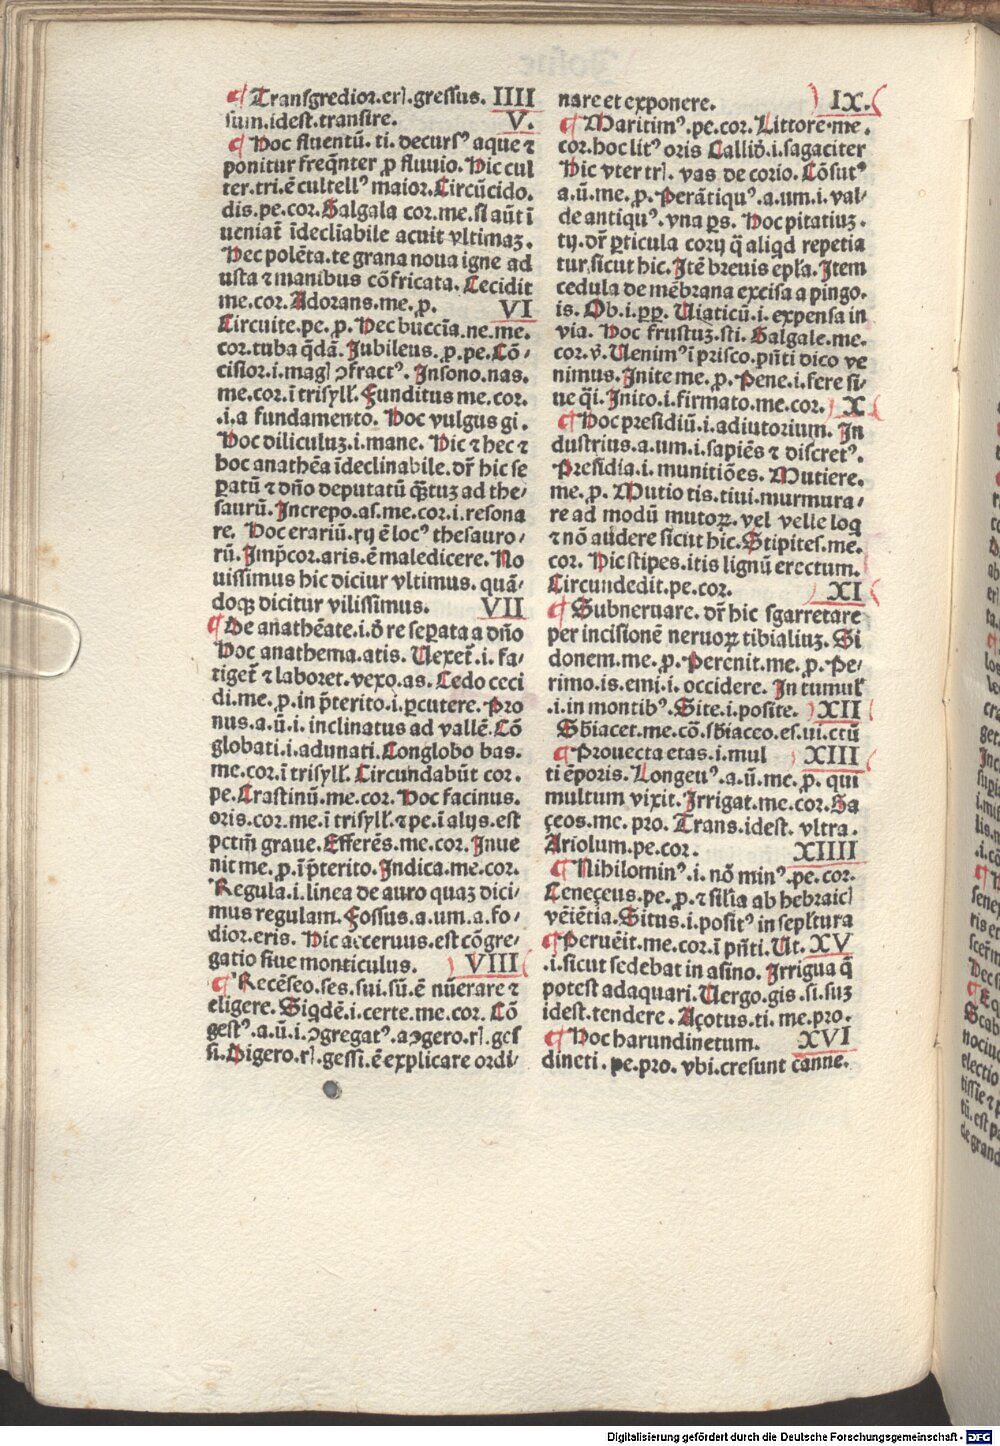 ¶ Transgredior.erꝭ.gressus. IIII
sum.idest.transire. V.
¶ Hoc fluentū. ti. decursꝰ aque ⁊
ponitur freq̄nter ꝓ fluuio. Hic cul
ter.tri.ē cultellꝰ maior. Circūcido.
dis.pe.cor. Galgala cor.me.si aūt ī
ueniat̄ īdeclīabile acuit vltimaꝫ.
Hec polēta.te grana noua igne ad
usta ⁊ manibus cōfricata. Cecidit
me.cor. Adorans.me.ꝓ. VI
Circuite.pe.ꝓ. Hec buccīa.ne.me.
cor.tuba q̄dā. Jubileus.ꝓ.pe. Cō-
cisior.i.magꝭ ꝯfractꝰ. Insono.nas.
me.cor.ī trisyllꝭ. Funditus me.cor.
.i.a fundamento. Hoc vulgus gi.
Hoc diliculuꝫ.i.mane. Hic ⁊ hec ⁊
hoc anathēa īdeclinabile.dr̄ hic se
ꝑatū ⁊ dn̄o deputatū q̄ꝫtuꝫ ad the-
saurū. Increpo.as.me.cor.i.resona
re. Hoc erariū.rij ē locꝰ thesauro-
rū. Imp̄cor.aris.ē maledicere. No
uissimus hic diciur vltimus. quā-
doqꝫ dicitur vilissimus. VII
¶ De anathēate.i.d̄ re seꝑata a dn̄o
Hoc anathema.atis. Uexet̄.i.fa-
tiget̄ ⁊ laboret.vexo.as. Cedo ceci
di.me.ꝓ.in p̄terito.i.ꝑcutere. Pro
nus.a.ū.i.inclinatus ad vallē. Cō
globati.i.adunati. Conglobo bas.
me.cor.ī trisyllꝭ. Circundabūt cor.
pe. Crastinū.me.cor. Hoc facinus.
oris.cor.me.ī trisyllꝭ.⁊ pe.ī alijs.est
pctm̄ graue. Efferēs.me.cor. Inue
nit me.ꝓ.ī p̄terito. Indica.me.cor.
Regula.i.linea de auro quaꝫ dici-
mus regulam. Fossus.a.um.a.fo-
dior.eris. Hic aceruus.est cōgre-
gatio siue monticulus. VIII
¶ Recēseo.ses.sui.sū.ē nūerare ⁊
eligere. Siqdē.i.certe.me.cor. Cō
gestꝰ.a.ū.i.ꝯgregatꝰ.aꝯgero.rꝭ.ges
si. Digero.rꝭ.gessi.ē explicare ordi-
nare et exponere. IX.
¶ Maritimꝰ.pe.cor. Littore.me.
cor.hoc litꝰ oris Callid̄.i.sagaciter
Hic vter trꝭ. vas de corio. Cōsutꝰ
a.ū.me.ꝓ. Perātiquꝰ.a.um.i.val-
de antiquꝰ.vna ꝑs. Hoc pitatiuꝫ.
tij.dr̄ ꝑticula corij q̄ aliqd repetia
tur.sicut hic. Itē breuis epl̄a. Item
cedula de mēbrana excisa a pingo.
is. Ob.i.ꝓp. Uiaticū.i.expensa in
via. Hoc frustuꝫ.sti. Galgale.me.
cor.v̄. Uenimꝰ ī prisco.pn̄ti dico ve
nimus. Inite me.ꝓ. Pene.i.fere si-
ue q̄i. Inito.i.firmato.me.cor. X
¶ Hoc presidiū.i.adiutorium. In
dustrius.a.um.i.sapiēs ⁊ discretꝰ.
Presidia.i.munitiōes. Mutiere.
me.ꝓ. Mutio tis.tiui.murmura-
re ad modū mutoꝝ. vel velle loq
⁊ nō audere sicut hic. Stipites.me.
cor. Hic stipes.itis lignū erectum.
Circundedit.pe.cor. XI
¶ Subneruare. dr̄ hic sgarretare
per incisionē neruoꝝ tibialiuꝫ. Si
donem.me.ꝓ. Perenit.me.ꝓ. Pe-
rimo.is.emi.i.occidere. In tumulꝭ
.i.in montibꝰ. Site.i.posite. XII
Sb̄iacet.me.cō.sb̄iaceo.es.ui.ecū
¶ Prouecta etas.i.mul XIII
ti ēporis. Longeuꝰ.a.ū.me.ꝓ. qui
multum vixit. Irrigat.me.cor. Sa
çeos.me.pro. Trans.idest.vltra.
Ariolum.pe.cor. XIIII
¶ Nihilominꝰ.i.nō minꝰ.pe.cor.
Ceneçeus.pe.ꝓ.⁊ silia ab hebraicꝭ
vēiētia. Situs.i.positꝰ in sepl̄tura
¶ Peruēit.me.cor.ī pn̄ti. Ut. XV
.i.sicut sedebat in asino. Irrigua q̄
potest adaquari. Uergo.gis.si.suꝫ
idest.tendere. Açotus.ti.me.pro.
¶ Hoc harundinetum. XVI
dineti.pe.pro.vbi.cresunt canne.
Digitalisierung gefördert durch die Deutsche Forschungsgemeinschaft - DFG